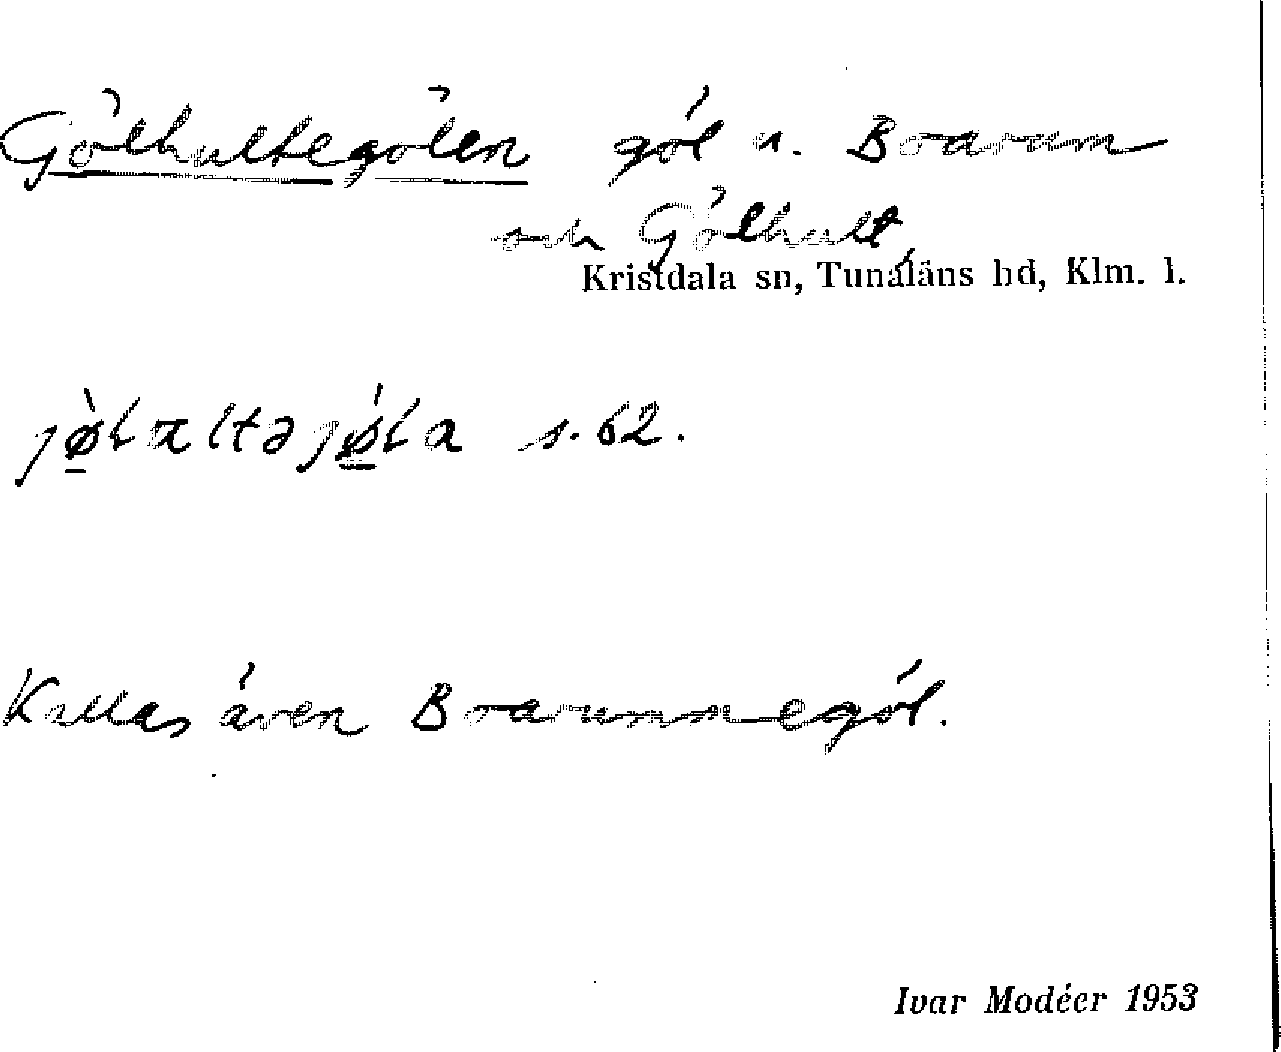 Gölhultegölen göl u. Boarum
och Gölhult,
Kristdala sn, Tunaläns hd, Klm. l.
s. 62.
Kallas även Boarummegöl.
Ivar Modéer 1953